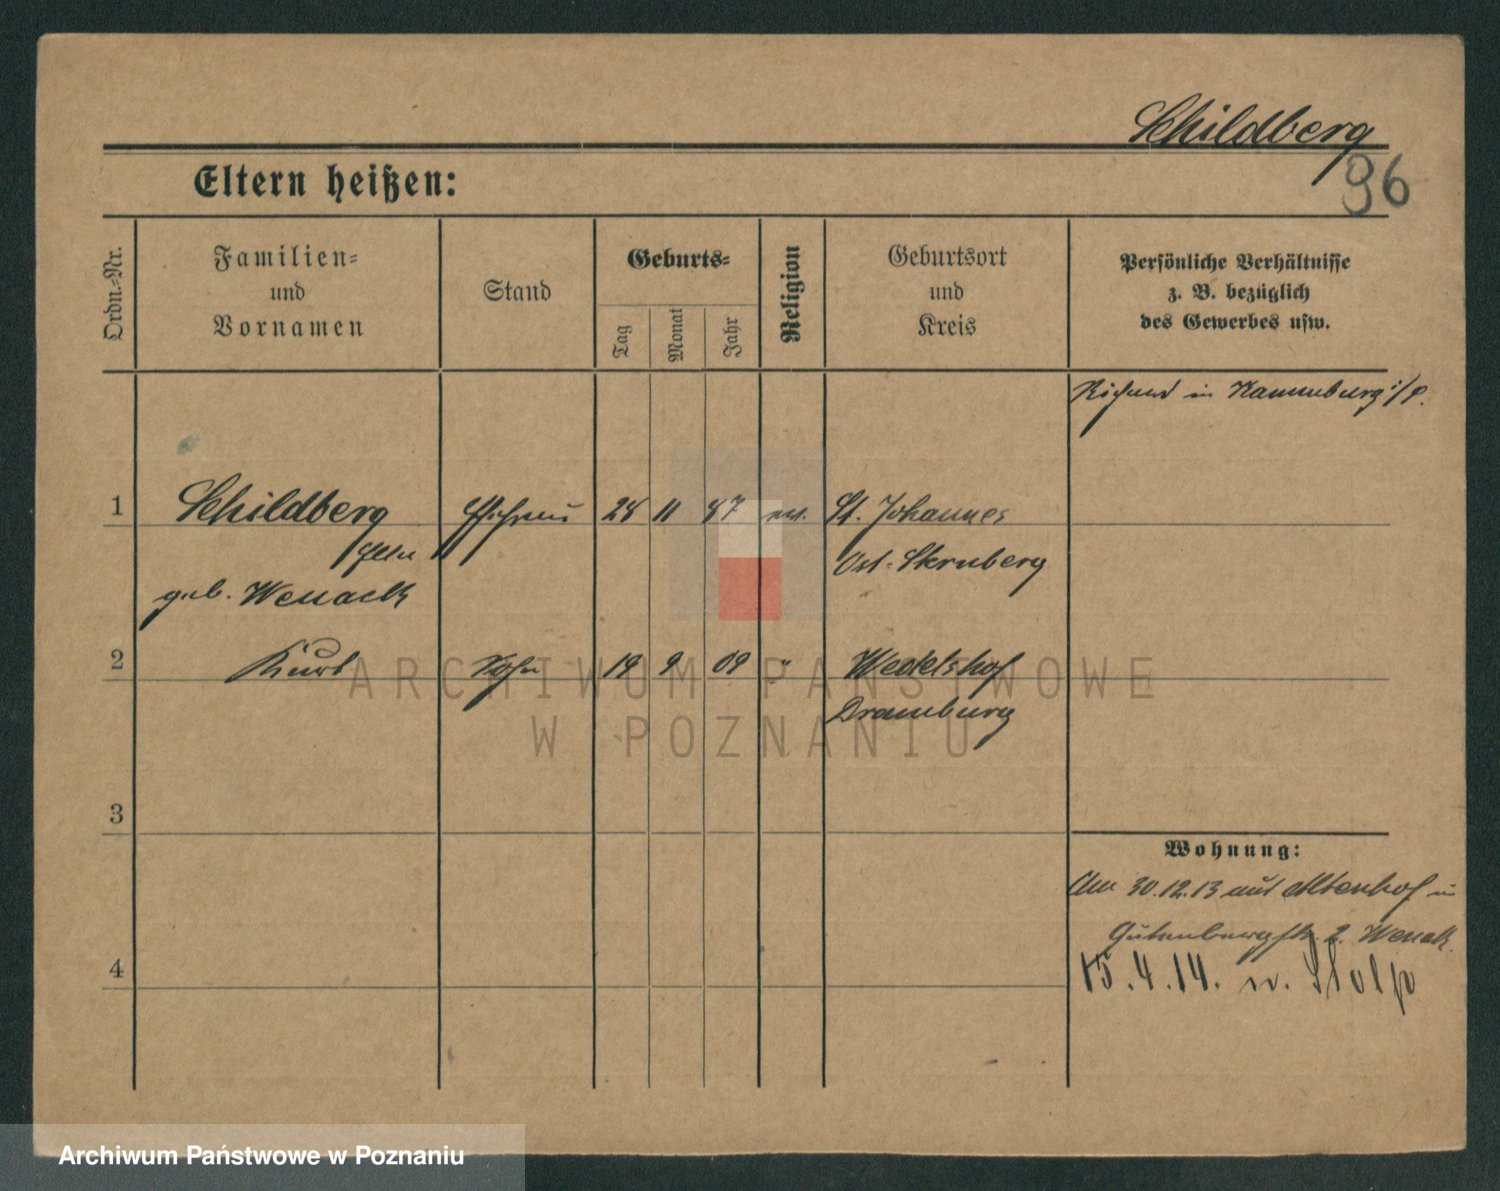 Schildberg
96
Eltern heißen:
Ordn.-Nr.
Familien-
und
Vornamen
Stand
Geburts-
Tag
Monat
Jahr
Religion
Geburtsort
und
Kreis
Persönliche Verhältnisse
z. B. bezüglich
des Gewerbes usw.
in
1
Schildberg
28 11 87
St. Johannes
Ost-Sternberg
geb. Wenack
2
Kurt
Sohn
19 9 09 "
Wedelshof
Dramburg
3
4
Wohnung:
Am 30.12.13 aus Altenhof in
Gutenbergstr. 2. Wenack.
15.4.14. n. Stolp
ARCHIWUM PAŃSTWOWE
W POZNANIU
Archiwum Państwowe w Poznaniu